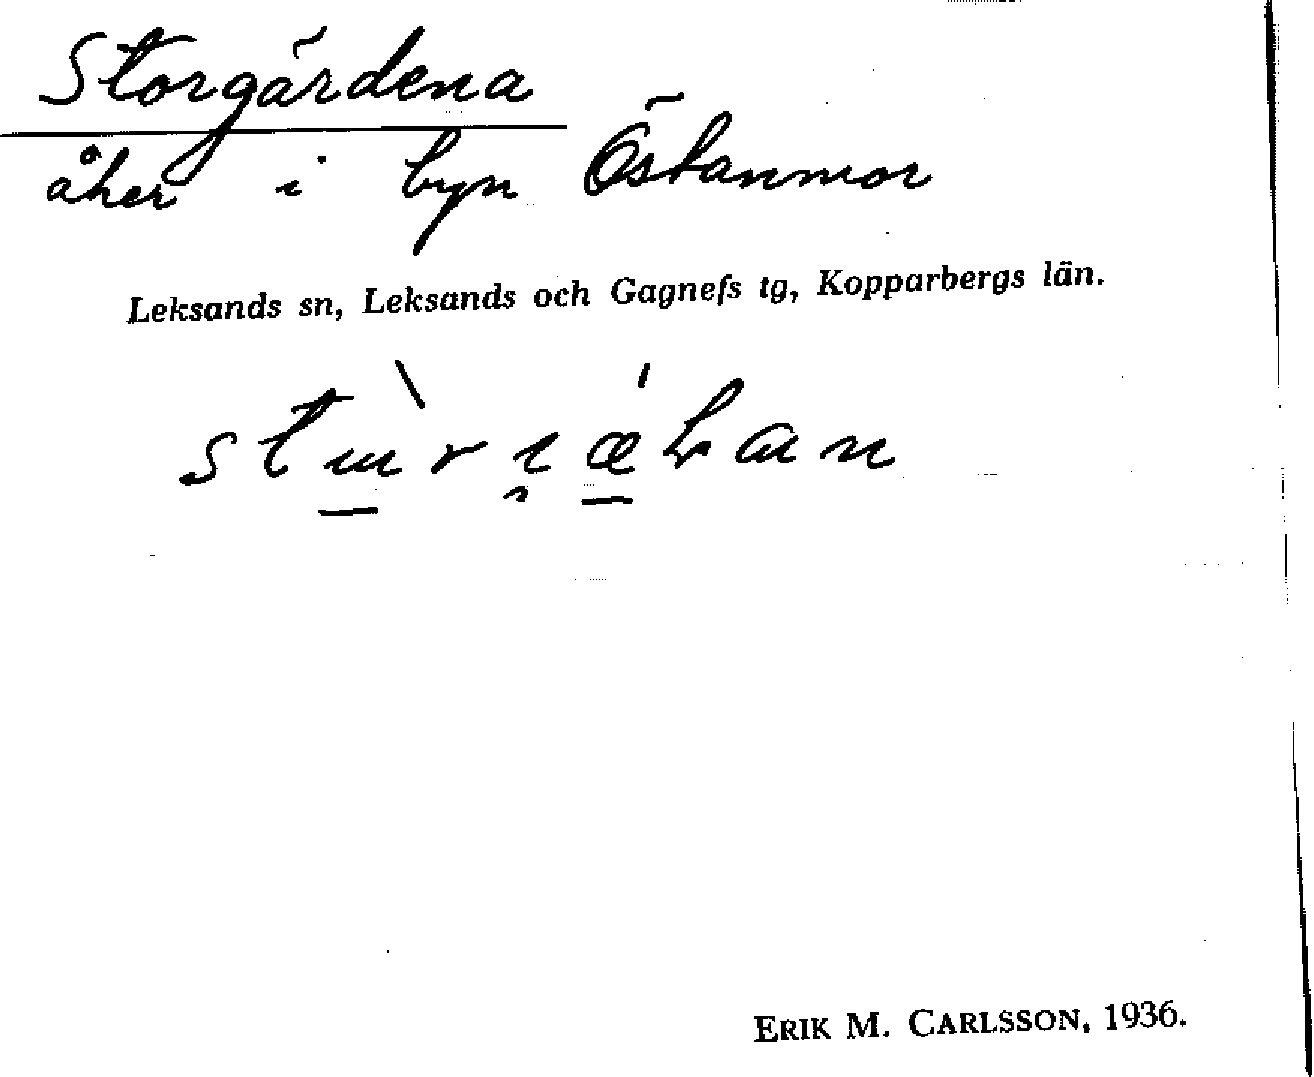 Storgärdena
åker i byn Östanmor
Leksands sn, Leksands och Gagnefs tg, Kopparbergs län.
ERIK M. CARLSSON, 1936.